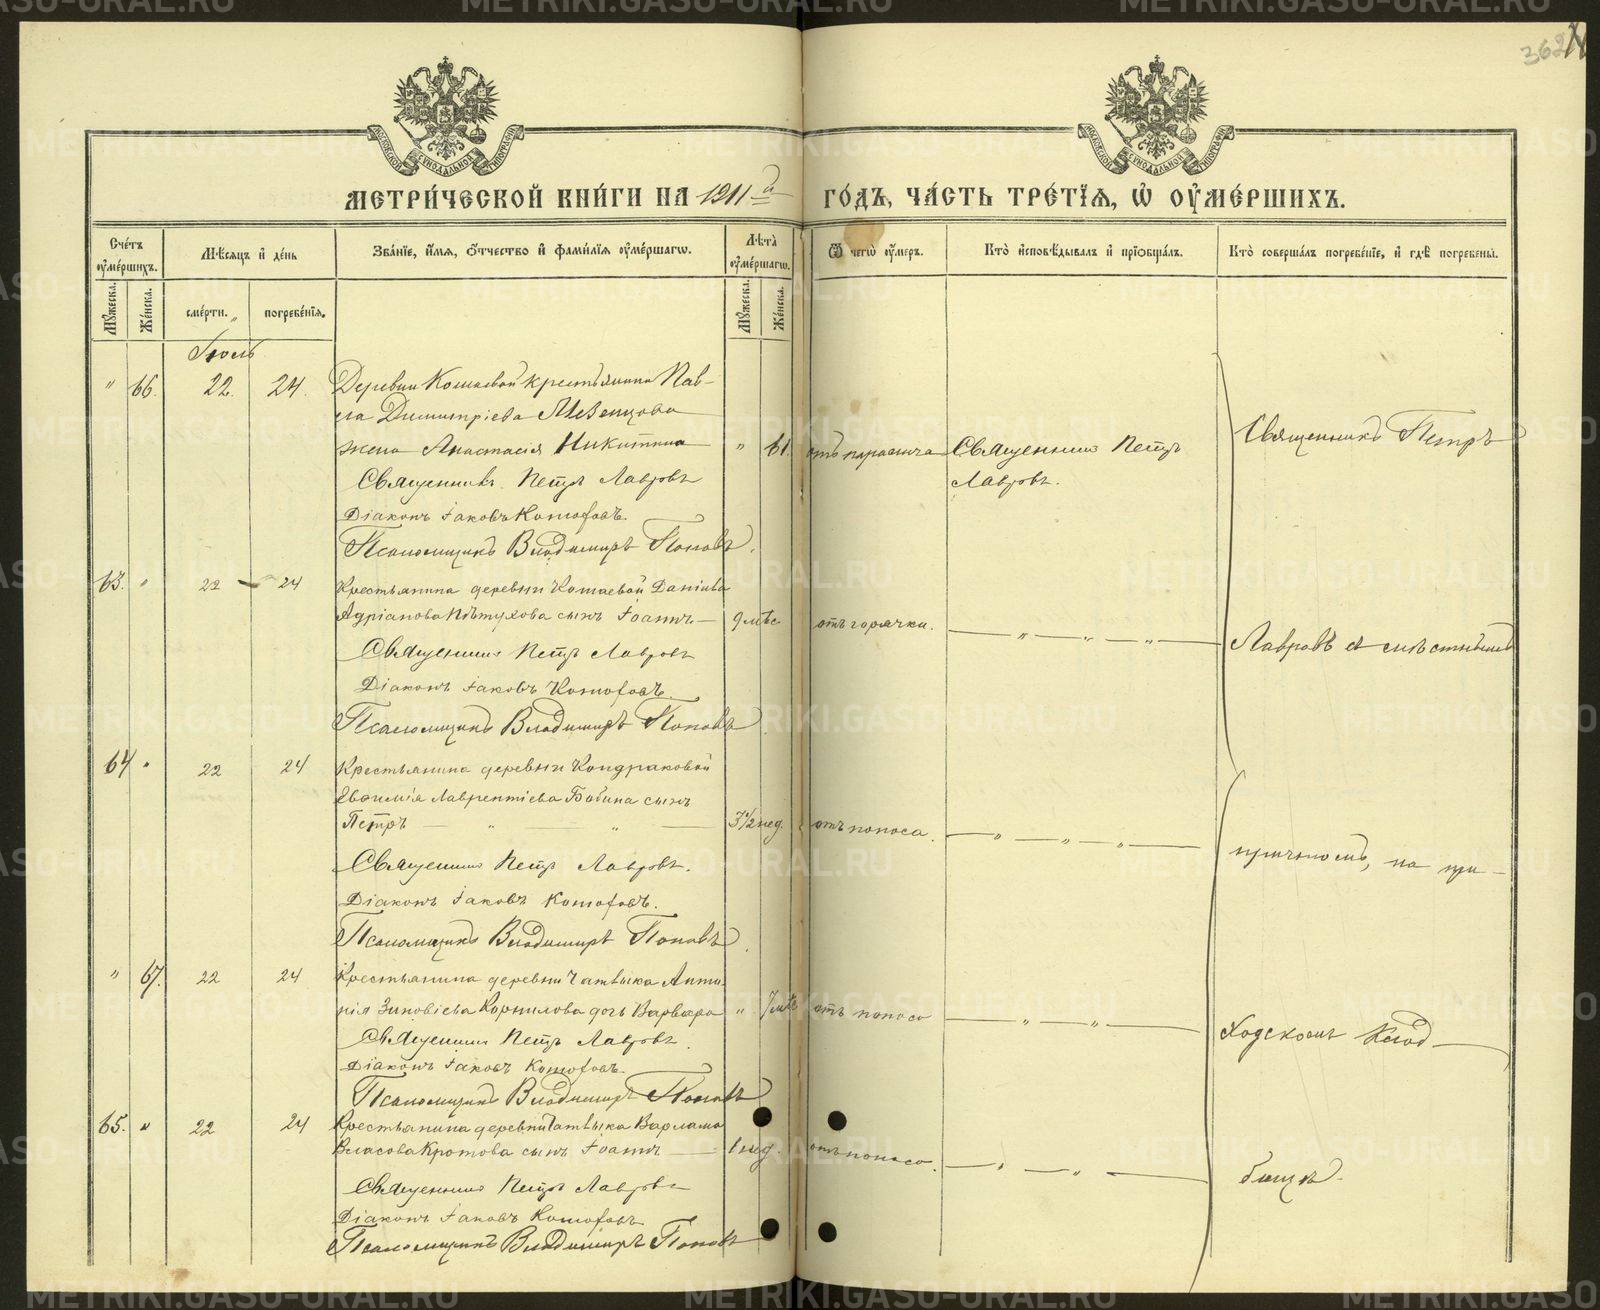 362
МЕТРИЧЕСКОЙ КНИГИ НА 1911й ГОДЪ, ЧАСТЬ ТРЕТІЯ, Ѿ ОУМЕРШИХЪ.
Счетъ оумершихъ.
Мѣсяцъ и день
Званіе, имя, отчество и фамилія оумершагѡ.
Лѣта оумершагѡ.
Ѿ чегѡ оумеръ.
Кто исповѣдывалъ и пріобщалъ.
Кто совершалъ погребеніе, и гдѣ погребены.
Мужеска.
Женска.
смерти.
погребенія.
Мужеска.
Женска.
Іюль
" 66. 22. 24. Деревни Кошаевой крестьянина Пав-
ла Димитріева Мезенцова
жена Анастасія Никитина " 61. отъ паралича Священникъ Петръ
Лавровъ.
Священникъ Петръ
Священникъ Петръ Лавровъ
Діаконъ Іаковъ
Псаломщикъ Владимиръ Поповъ.
63. " 22 24 Крестьянина деревни Кошаевой Даніила
Адріанова Пѣтухова сынъ Іоаннъ 9 мѣс отъ горячки. — " — " — " —
Лавровъ съ мѣстнымъ
Священникъ Петръ Лавровъ
Діаконъ Іаковъ
Псаломщикъ Владимиръ Поповъ
64 " 22 24 Крестьянина деревни Кондраковой
Евфимія Лаврентіева Бабина сынъ
Петръ — " — " — 3½ нед. отъ поноса. — " — " — " —
причтомъ, на при-
Священникъ Петръ Лавровъ.
Діаконъ Іаковъ
Псаломщикъ Владимиръ Поповъ
" 67. 22 24 Крестьянина деревни Чатлыка
Зиновіева Корнилова дочь Варвара " 7 мѣс отъ поноса — " — " —
ходскомъ клад-
Священникъ Петръ Лавровъ.
Діаконъ Іаковъ
Псаломщикъ Владимиръ Поповъ
65. " 22 24 Крестьянина деревни Чатлыка Варлама
Власова Кротова сынъ Іоаннъ нед. отъ поноса. — " — " —
бищѣ.
Священникъ Петръ Лавровъ
Діаконъ Іаковъ
Псаломщикъ Владимиръ Поповъ
METRIKI.GASO-URAL.RU